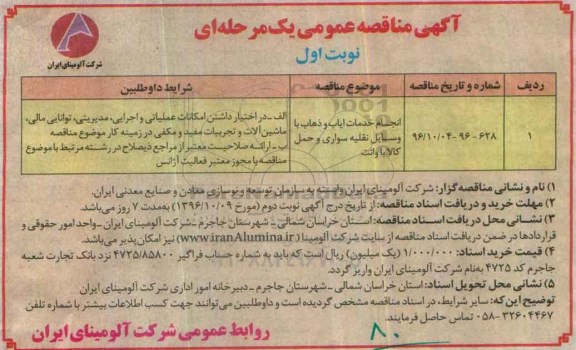 آگهی مناقصه عمومی یک مرحله‌ای
نوبت اول
شرکت آلومینای ایران
ردیف
شماره و تاریخ مناقصه
موضوع مناقصه
شرایط داوطلبین
۱
۹۶/۱۰/۰۴-۹۶-۶۲۸
انجام خدمات ایاب و ذهاب با
وسایل نقلیه سواری و حمل
کالا با وانت
الف- در اختیار داشتن امکانات عملیاتی و اجرایی، مدیریتی، توانایی مالی،
ماشین آلات و تجربیات مفید و مکفی در زمینه کار موضوع مناقصه
ب- ارائه صلاحیت معتبر از مراجع ذیصلاح در رشته مرتبط با موضوع
مناقصه یا مجوز معتبر فعالیت آژانس
۱) نام و نشانی مناقصه گزار: شرکت آلومینای ایران وابسته به سازمان توسعه و نوسازی معادن و صنایع معدنی ایران.
۲) مهلت خرید و دریافت اسناد مناقصه: از تاریخ درج آگهی نوبت دوم (مورخ ۱۳۹۶/۱۰/۰۹) به مدت ۷ روز می‌باشد.
۳) نشانی محل دریافت اسناد مناقصه: استان خراسان شمالی - شهرستان جاجرم - شرکت آلومینای ایران - واحد امور حقوقی و
قراردادها در ضمن دریافت اسناد مناقصه از سایت شرکت آلومینا (www.iranAlumina.ir) نیز امکان پذیر می‌باشد.
۴) قیمت خرید اسناد: ۱/۰۰۰/۰۰۰ (یک میلیون) ریال است که باید به شماره حساب فراگیر ۴۷۲۵/۸۵۸۰۰ نزد بانک تجارت شعبه
جاجرم کد ۴۷۲۵ به نام شرکت آلومینای ایران واریز گردد.
۵) نشانی محل تحویل اسناد: استان خراسان شمالی - شهرستان جاجرم - دبیرخانه امور اداری شرکت آلومینای ایران
توضیح این که: سایر شرایط، در اسناد مناقصه مشخص گردیده است و داوطلبین می‌توانند جهت کسب اطلاعات بیشتر با شماره تلفن
۰۵۸-۳۲۶۰۴۴۶۷ تماس حاصل فرمایند.
روابط عمومی شرکت آلومینای ایران
۸۰